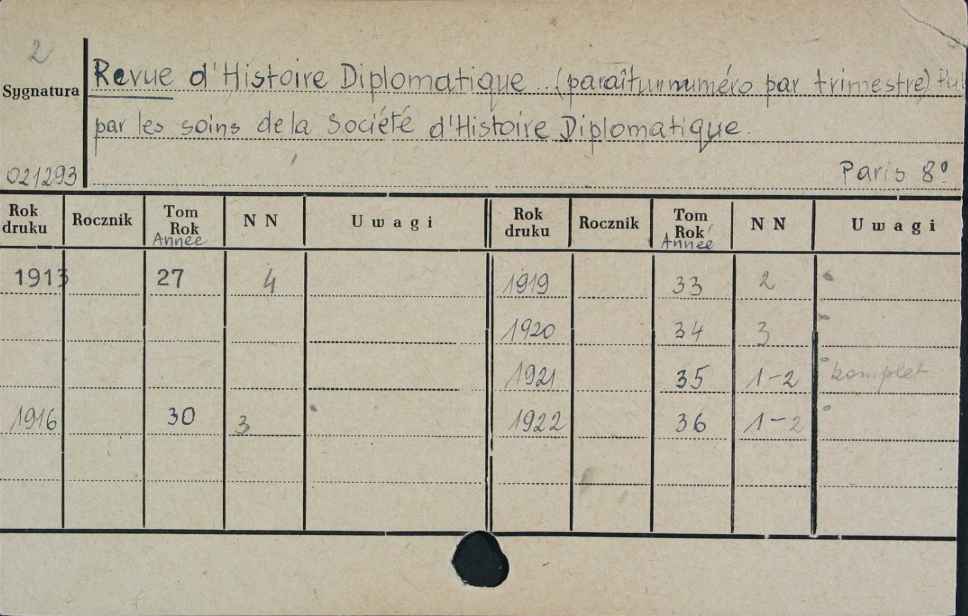 2
Sygnatura
Revue d'Histoire Diplomatique (paraîtunnuméro par trimestre)
par les soins de la Société d'Histoire Diplomatique.
021293 Paris 8º
Rok druku Rocznik Tom Rok Année N N Uwagi Rok druku Rocznik Tom Rok Année N N Uwagi
1913 27 4 1919 33 2
1920 34 3
1921 35 1-2 komplet
1916 30 3 1922 36 1-2